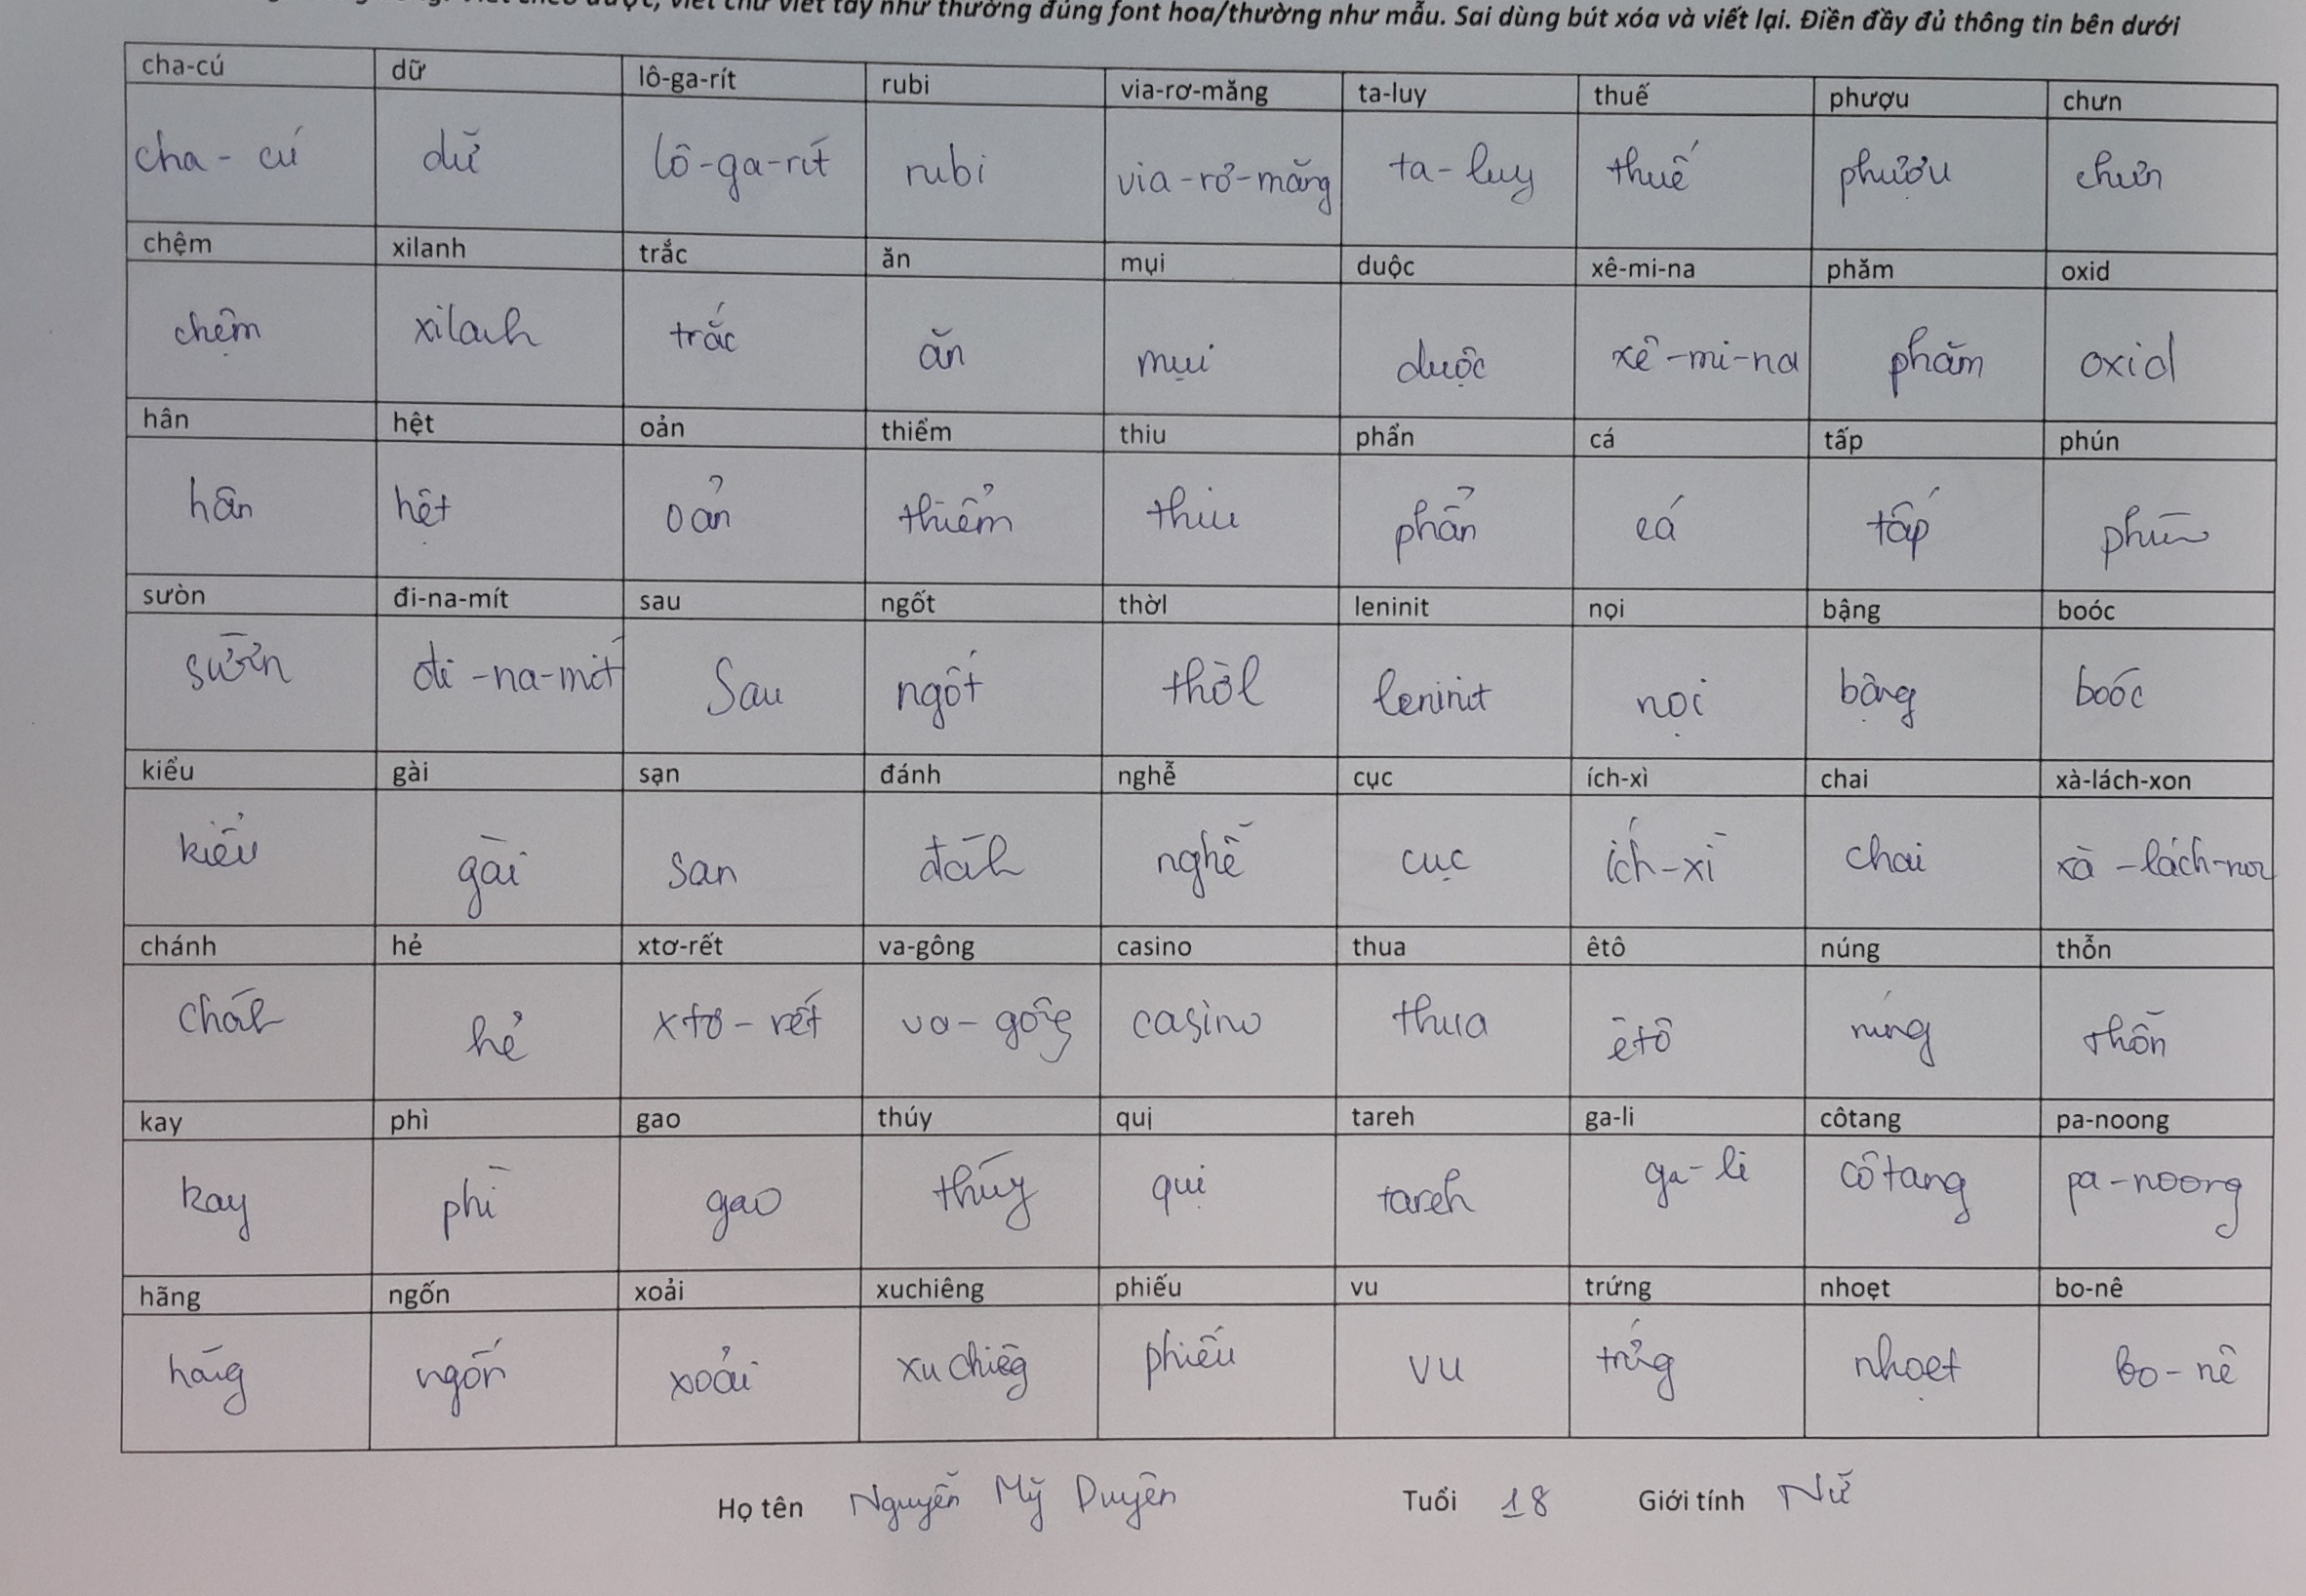 viết chữ viết tay như thường đúng font hoa/thường như mẫu. Sai dùng bút xóa và viết lại. Điền đầy đủ thông tin bên dưới
cha-cú dữ lô-ga-rít rubi via-rơ-măng ta-luy thuế phượu chưn
cha-cú dữ lô-ga-rít rubi via-rơ-măng ta-luy thuế phượu chưn
chệm xilanh trắc ăn mụi duộc xê-mi-na phăm oxid
chệm xilanh trắc ăn mụi duộc xê-mi-na phăm oxid
hân hệt oản thiểm thiu phẩn cá tấp phún
hân hệt oản thiểm thiu phẩn cá tấp phún
sườn đi-na-mít sau ngốt thờl leninit nọi bậng boóc
sườn đi-na-mít Sau ngốt thờl leninit nọi bậng boóc
kiểu gài sạn đánh nghễ cục ích-xì chai xà-lách-xon
kiểu gài san đánh nghễ cục ích-xì chai xà-lách-xon
chánh hẻ xtơ-rết va-gông casino thua êtô núng thỗn
chánh hẻ xtơ-rết va-gông casino thua êtô núng thỗn
kay phì gao thúy quị tareh ga-li côtang pa-noong
kay phì gao thúy quị tareh ga-li côtang pa-noong
hãng ngốn xoải xuchiêng phiếu vu trứng nhoẹt bo-nê
hãng ngốn xoải xuchiêng phiếu vu trứng nhoẹt bo-nê
Họ tên Nguyễn Mỹ Duyên Tuổi 18 Giới tính Nữ